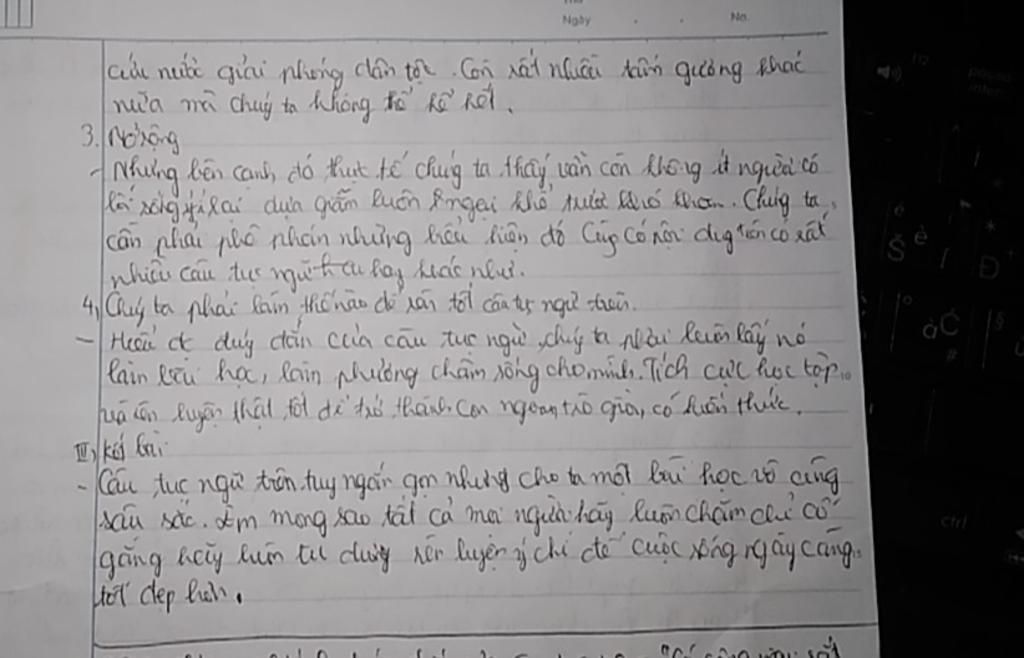 Ngày No.
cứu nước giải phóng dân tộc. Còn rất nhiều tấm gương khác
nữa mà chúng ta không thể kể hết.
3. Mở rộng
- Nhưng bên cạnh, đó thực tế chúng ta thấy vẫn còn không ít người có
lối sống ỷ lại dựa giẫm luôn ngại khó, trước khó khăn. Chúng ta
cần phải phê phán những biểu hiện đó Cũng có nội dung trên có rất
nhiều câu tục ngữ hay khác như.
4, Chúng ta phải làm thế nào để tốt câu tục ngữ trên.
- Hiểu đc đúng đắn của câu tục ngữ, chúng ta phải luôn lấy nó
làm bài học, làm phương châm sống cho mình. Tích cực học tập..
và rèn luyện thật tốt để trở thành con ngoan, trò giỏi, có kiến thức.
III, Kết bài
- Câu tục ngữ trên tuy ngắn gọn nhưng cho ta một bài học vô cùng
sâu sắc. Em mong sao tất cả mọi người hãy luôn chăm chỉ cố
gắng hãy luôn rèn luyện ý chí để cuộc sống ngày càng..
tốt đẹp hơn.
ctrl